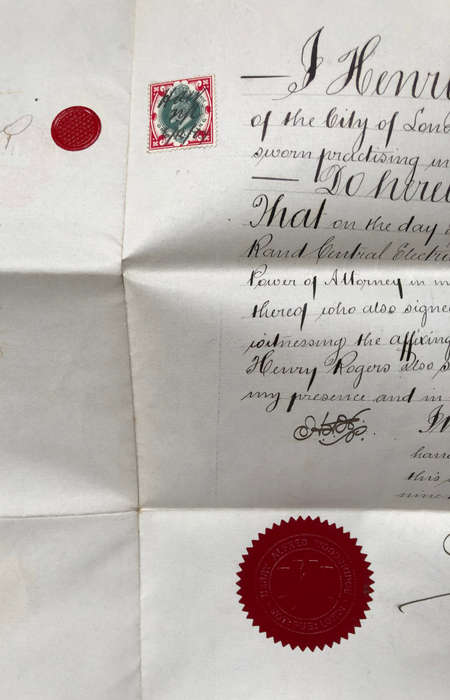 I Henry
of the City of Lond
sworn practising in
Do hereb
That on the day
Rand Central Electri
Power of Attorney in
thereof who also signe
witnessing the affixing
Henry Rogers also s
my presence and in
In
han
this
nine